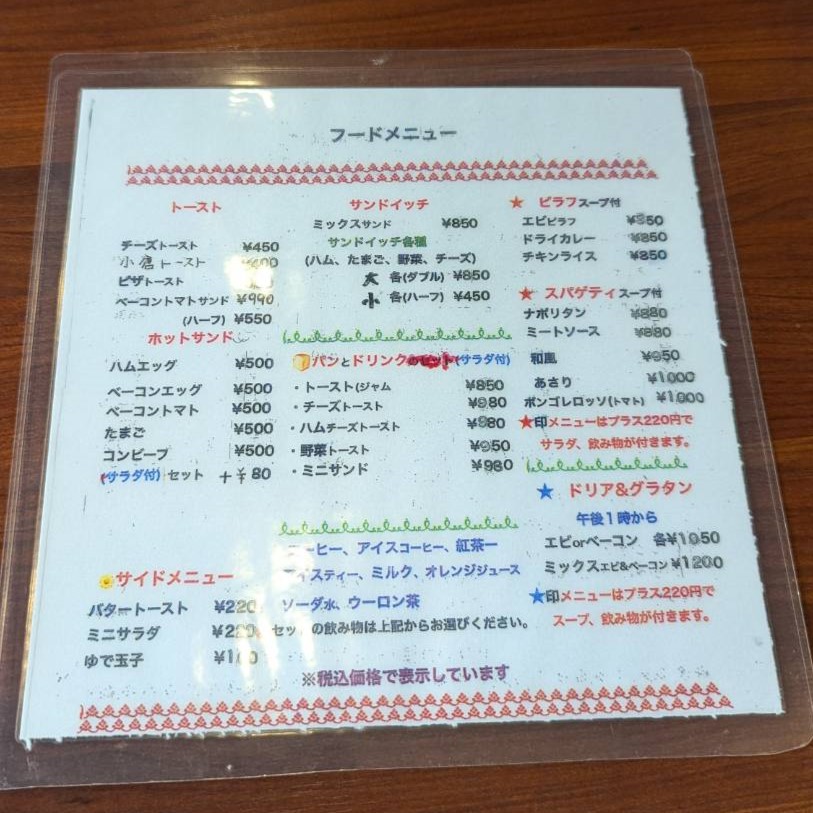 フードメニュー
トースト
チーズトースト ¥450
小倉トースト
ピザトースト
ベーコントマトサンド ¥990
(ハーフ) ¥550
ホットサンド
ハムエッグ ¥500
ベーコンエッグ ¥500
ベーコントマト ¥500
たまご ¥500
コンビーフ ¥500
(サラダ付) セット +¥80
サイドメニュー
バタートースト ¥220
ミニサラダ ¥220
ゆで玉子
サンドイッチ
ミックスサンド ¥850
サンドイッチ各種
(ハム、たまご、野菜、チーズ)
大 各(ダブル) ¥850
小 各(ハーフ) ¥450
パンとドリンクのセット(サラダ付)
・トースト(ジャム ¥850
・チーズトースト
・ハムチーズトースト
・野菜トースト ¥950
・ミニサンド ¥980
コーヒー、アイスコーヒー、紅茶ー
アイスティー、ミルク、オレンジジュース
ソーダ水、ウーロン茶
セットの飲み物は上記からお選びください。
※税込価格で表示しています
★ ピラフスープ付
エビピラフ
ドライカレー ¥850
チキンライス ¥850
★ スパゲティスープ付
ナポリタン ¥880
ミートソース ¥880
和風 ¥950
あさり ¥1000
ボンゴレロッソ(トマト) ¥1000
★印メニューはプラス220円で
サラダ、飲み物が付きます。
★ ドリア&グラタン
午後1時から
エビorベーコン 各¥1050
ミックスエビ&ベーコン ¥1200
★印メニューはプラス220円で
スープ、飲み物が付きます。